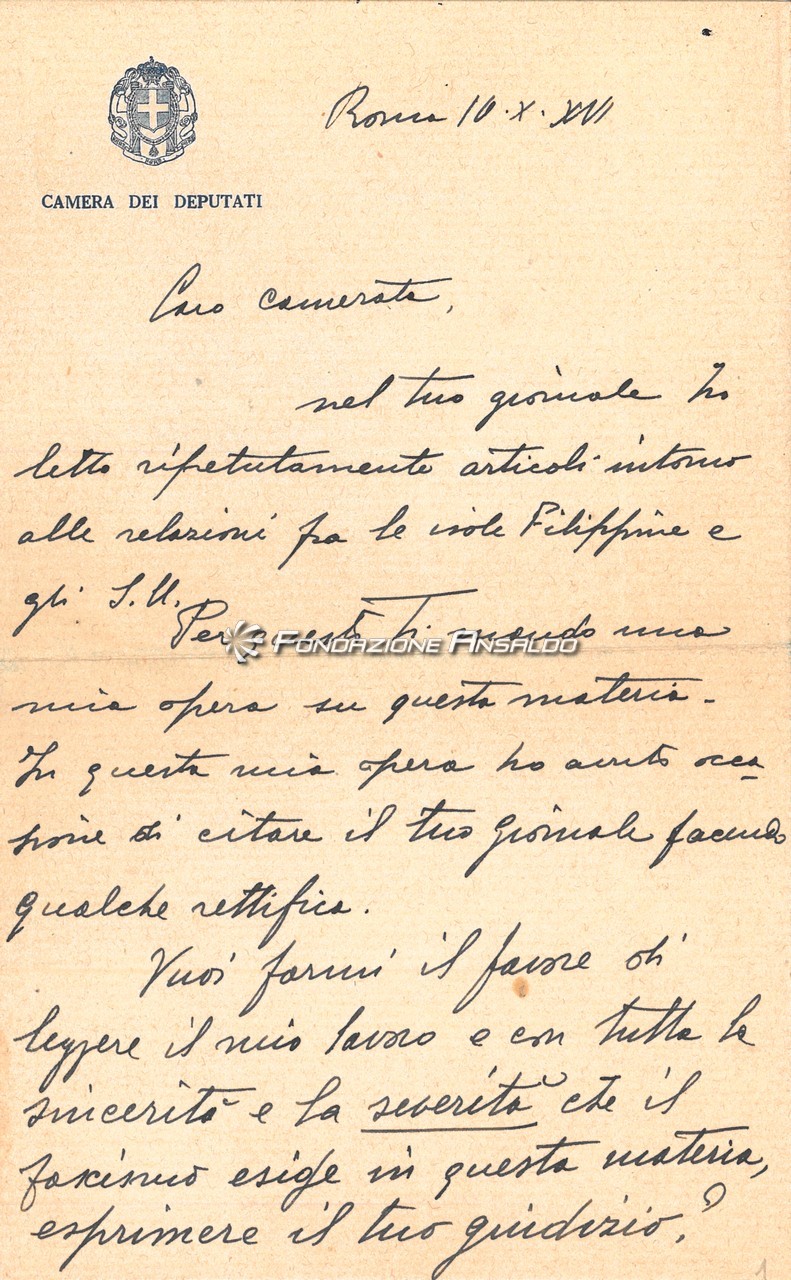 Roma 10.X.XVI
CAMERA DEI DEPUTATI
Caro camerata,
nel tuo giornale ho
letto ripetutamente articoli intorno
alle relazioni fra le isole Filippine e
gli S.U.
Per questo Ti mando una
FONDAZIONE ANSALDO
mia opera su questa materia.
In questa mia opera ho avuto occa
sione di citare il tuo giornale facendo
qualche rettifica.
Vuoi farmi il favore di
leggere il mio lavoro e con tutta la
sincerità e la severità che il
fascismo esige in questa materia,
esprimere il tuo giudizio?